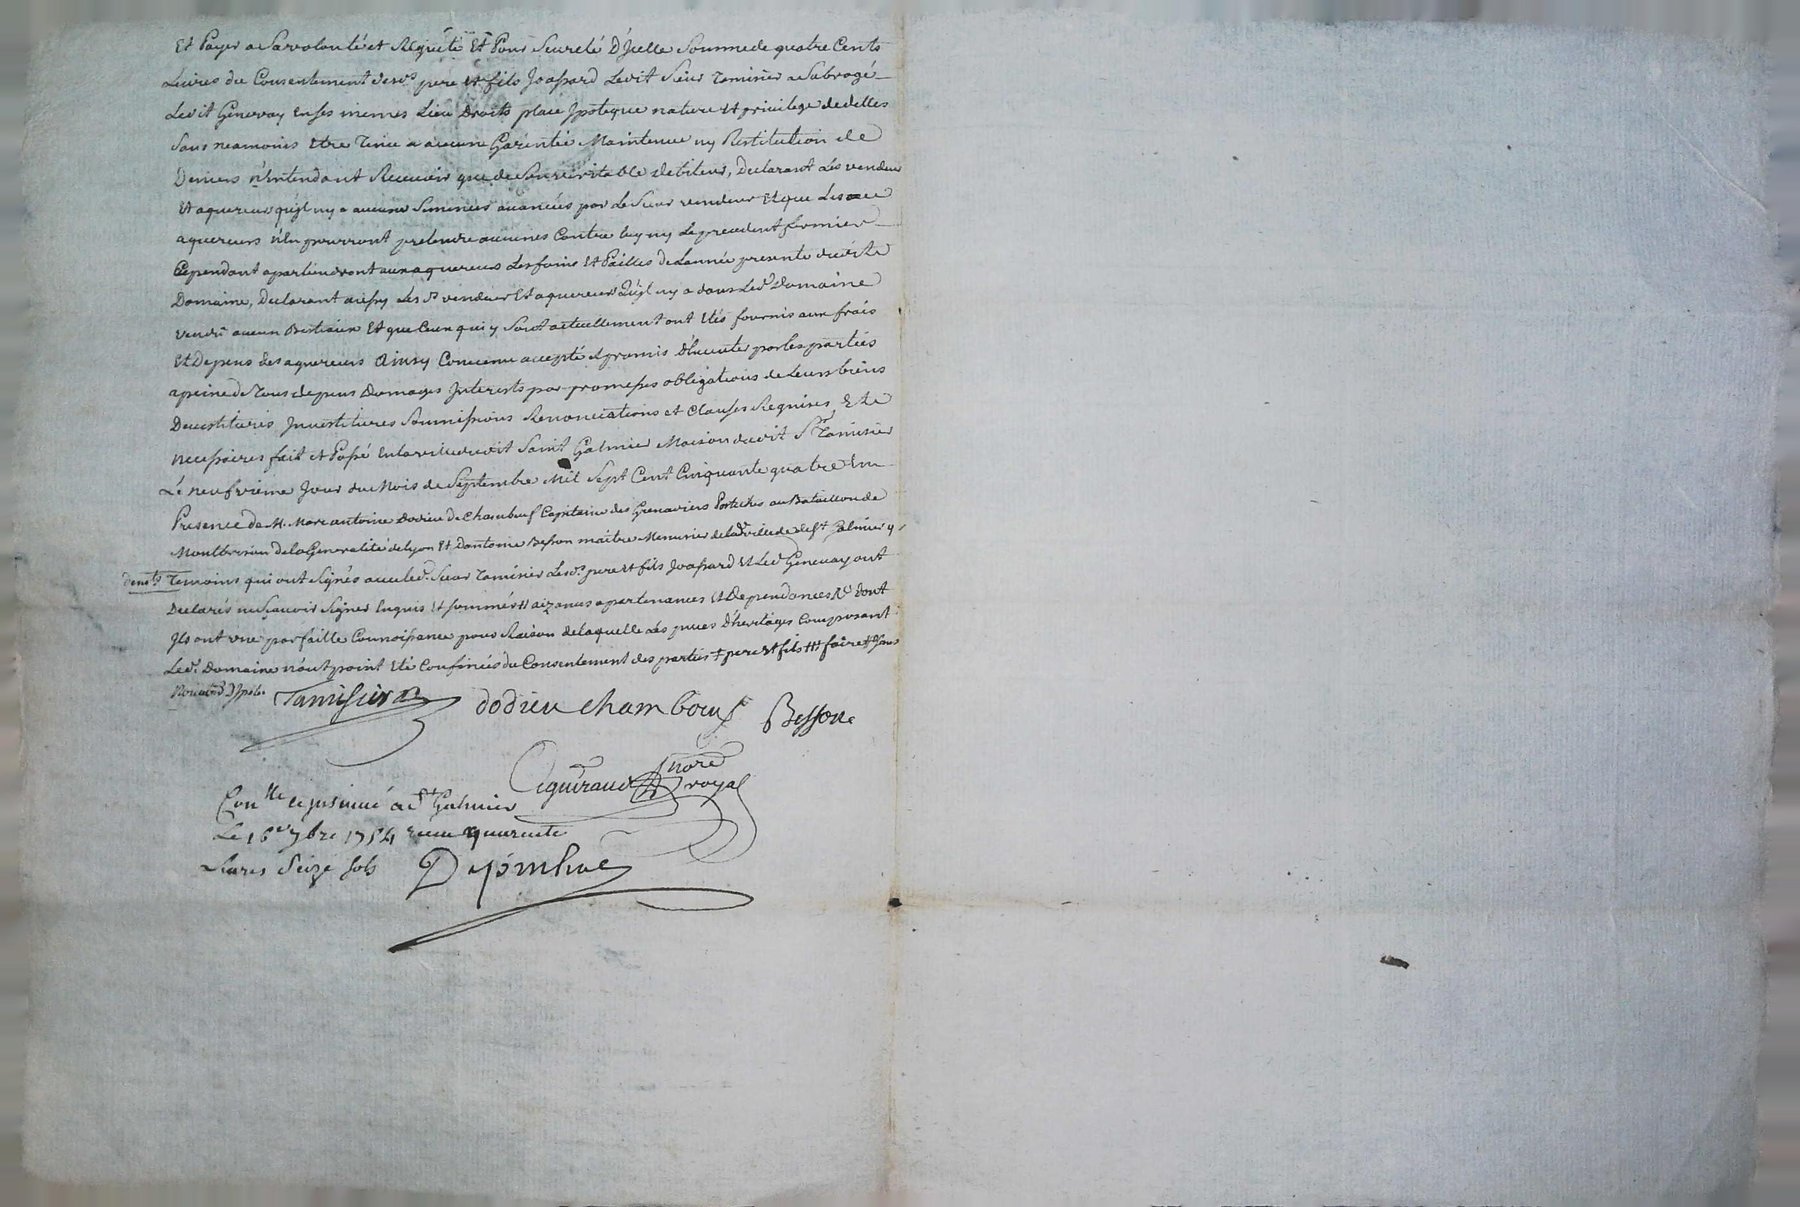 Et Payer a Sa volonté et Requete Et Pour Seureté D'Jcelle Somme de quatre Cents
Livres du Consentement desd.s pere et fils Joassard Ledit Sieur Tamisier a Subrogé
Ledit Genevay En ses memes Lieu Droits place Jpoteque nature et privilege d'Jcelles
Sans neamoins Etre Tenu a aucune Garentie Maintenue ny Restitution de
Deniers n'Entendant Recevoir que de Son veritable debiteur, Declarant Les vendeur
Et aquereur qu'jl ny a aucune Semences avancées par Le Sieur vendeur Et que Les
aquereurs n'En pourront pretendre aucunes Contre luy ny Le precedent fermier
Cependant apartiendront aux aquereurs Les foins Et Pailles de L'année presente dud.
Domaine, Declarant aussy Les S.r vendeur Et aquereurs Qu'jl ny a dans Led.t Domaine
vendu aucun Bestiaux Et que Ceux qui y Sont actuellement ont Etés fournis aux frais
Et Depens des aquereurs Ainsy Convenu accepté et promis D'Executer par les parties
a peine de Tous depens Domages Jnterests par promesses obligations de Leurs biens
Devestitures Jnvestitures Soumissions Renonciations et Clauses Requises Et
necessaires fait et Passé En la ville dudit Saint Galmier Maison dudit S.r Tamisier
Le neufvieme Jour du Mois de Septembre Mil Sept Cent Cinquante quatre En
Presence de M. Marc antoine Dodieu de Chambeuf Capitaine des Grenadiers Postiches au Bataillon de
Montbrison de la Generalité de Lyon Et D'antoine Besson maitre Menusier de lad. ville de S.t Galmier y
dem.ts Temoins qui ont Signés avec led. Sieur Tamisier Lesd.s pere et fils Joassard Et Led.t Genevay ont
Declarés ne Scavoir Signer Enquis Et Sommés aizances apartenances Et Dependances dont
Jls ont une parfaitte Connoissance pour Raison de laquelle Les pieces D'heritages Composant
Led.t Domaine n'ont point Eté Confinées du Consentement des parties + pere et fils +++ faire Sans
Tamisier
dodieu chambeuf
Besson
nore
royal
Con.lle et jnsinué a S.t Galmier
Le 16e 7bre 1754 Receu quarente
Livres Seize Sols